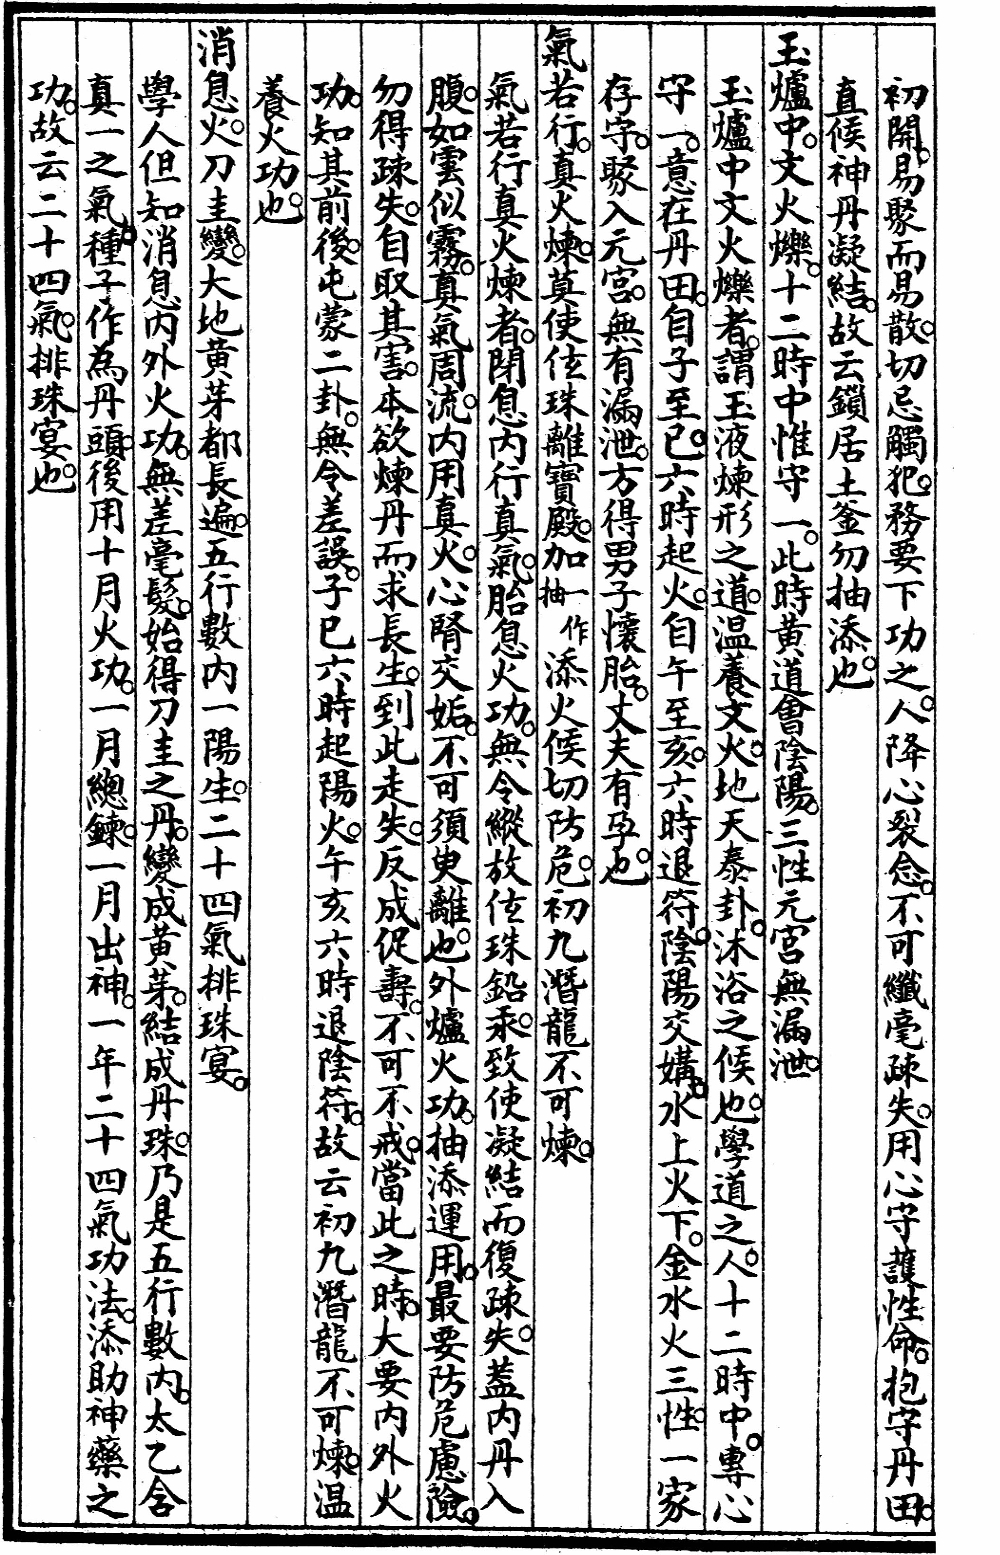 初開。易聚而易散。切忌觸犯。務要下功之人。降心裂念。不可纖毫疎失。用心守護性命。抱守丹田。
直候神丹凝結。故云鎖居土釜勿抽添也。
玉爐中。文火爍。十二時中惟守一。此時黃道會陰陽。三性元宮無漏泄。
玉爐中文火爍者。謂玉液煉形之道。溫養文火。地天泰卦。沐浴之候也。學道之人。十二時中。專心
守一。意在丹田。自子至巳。六時起火。自午至亥。六時退符。陰陽交媾。水上火下。金水火三性。一家
存守。聚入元宮。無有漏泄。方得男子懷胎。丈夫有孕也。
氣若行。真火煉。莫使佐珠離寶殿。加一作抽添火候切防危。初九潛龍不可煉。
氣若行真火煉者。閉息內行真氣。胎息火功。無令縱放佐珠鉛汞。致使凝結而復疎失。蓋內丹入
腹。如雲似霧。真氣周流。內用真火。心腎交姤。不可須臾離也。外爐火功。抽添運用。最要防危慮險。
勿得疎失。自取其害。本欲煉丹而求長生。到此走失。反成促壽。不可不戒。當此之時。大要內外火
功。知其前後。屯蒙二卦。無令差誤。子巳六時起陽火。午亥六時退陰符。故云初九潛龍不可煉。溫
養火功也。
消息火。刀圭變。大地黃芽都長遍。五行數內一陽生。二十四氣排珠宴。
學人但知消息內外火功。無差毫髮。始得刀圭之丹。變成黃芽。結成丹珠。乃是五行數內。太乙含
真一之氣。種子作為丹頭。後用十月火功。一月總鍊。一月出神。一年二十四氣功法。添助神藥之
功。故云二十四氣。排珠宴也。